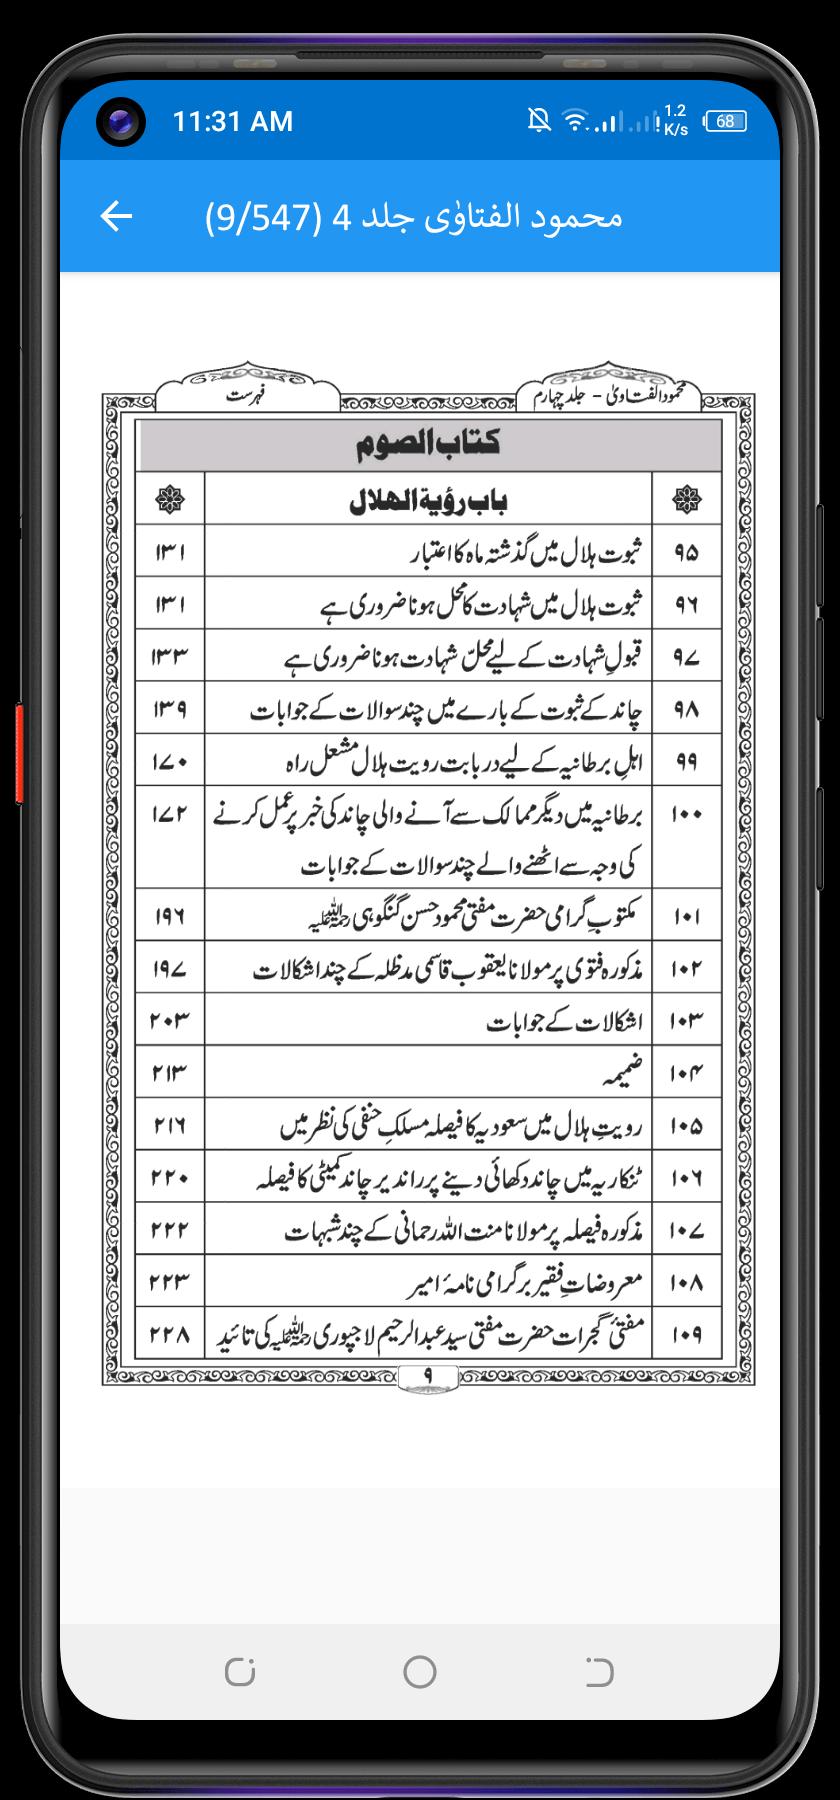 11:31 AM
1.2
K/s
68
محمود الفتاوٰی جلد 4 (9/547)
محمود الفتاویٰ - جلد چہارم
فہرست
کتاب الصوم
باب رؤیة الهلال
۹۵ ثبوت ہلال میں گذشتہ ماہ کا اعتبار ۱۳۱
۹۶ ثبوت ہلال میں شہادت کا محل ہونا ضروری ہے ۱۳۱
۹۷ قبولِ شہادت کے لیے محلّ شہادت ہونا ضروری ہے ۱۳۳
۹۸ چاند کے ثبوت کے بارے میں چند سوالات کے جوابات ۱۳۹
۹۹ اہلِ برطانیہ کے لیے در بابت رویت ہلال مشعل راہ ۱۷۰
۱۰۰ برطانیہ میں دیگر ممالک سے آنے والی چاند کی خبر پر عمل کرنے ۱۷۲
کی وجہ سے اٹھنے والے چند سوالات کے جوابات
۱۰۱ مکتوبِ گرامی حضرت مفتی محمود حسن گنگوہی رحمۃ اللہ علیہ ۱۹۶
۱۰۲ مذکورہ فتوی پر مولانا یعقوب قاسمی مدظلہ کے چند اشکالات ۱۹۷
۱۰۳ اشکالات کے جوابات ۲۰۳
۱۰۴ ضمیمہ ۲۱۳
۱۰۵ رویتِ ہلال میں سعودیہ کا فیصلہ مسلکِ حنفی کی نظر میں ۲۱۶
۱۰۶ ٹنکاریہ میں چاند دکھائی دینے پر راندیر چاند کمیٹی کا فیصلہ ۲۲۰
۱۰۷ مذکورہ فیصلہ پر مولانا منت اللہ رحمانی کے چند شبہات ۲۲۲
۱۰۸ معروضاتِ فقیر بر گرامی نامۂ امیر ۲۲۳
۱۰۹ مفتیٔ گجرات حضرت مفتی سید عبدالرحیم لاجپوری رحمۃ اللہ علیہ کی تائید ۲۲۸
۹